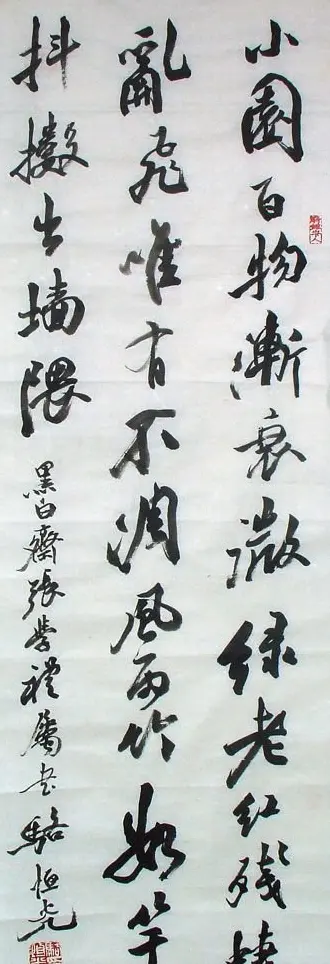 小園百物漸衰微綠老紅殘
亂飛唯有不凋風雨竹數竿
抖擻出墙隈
黑白齋張學禮屬書駱恒光